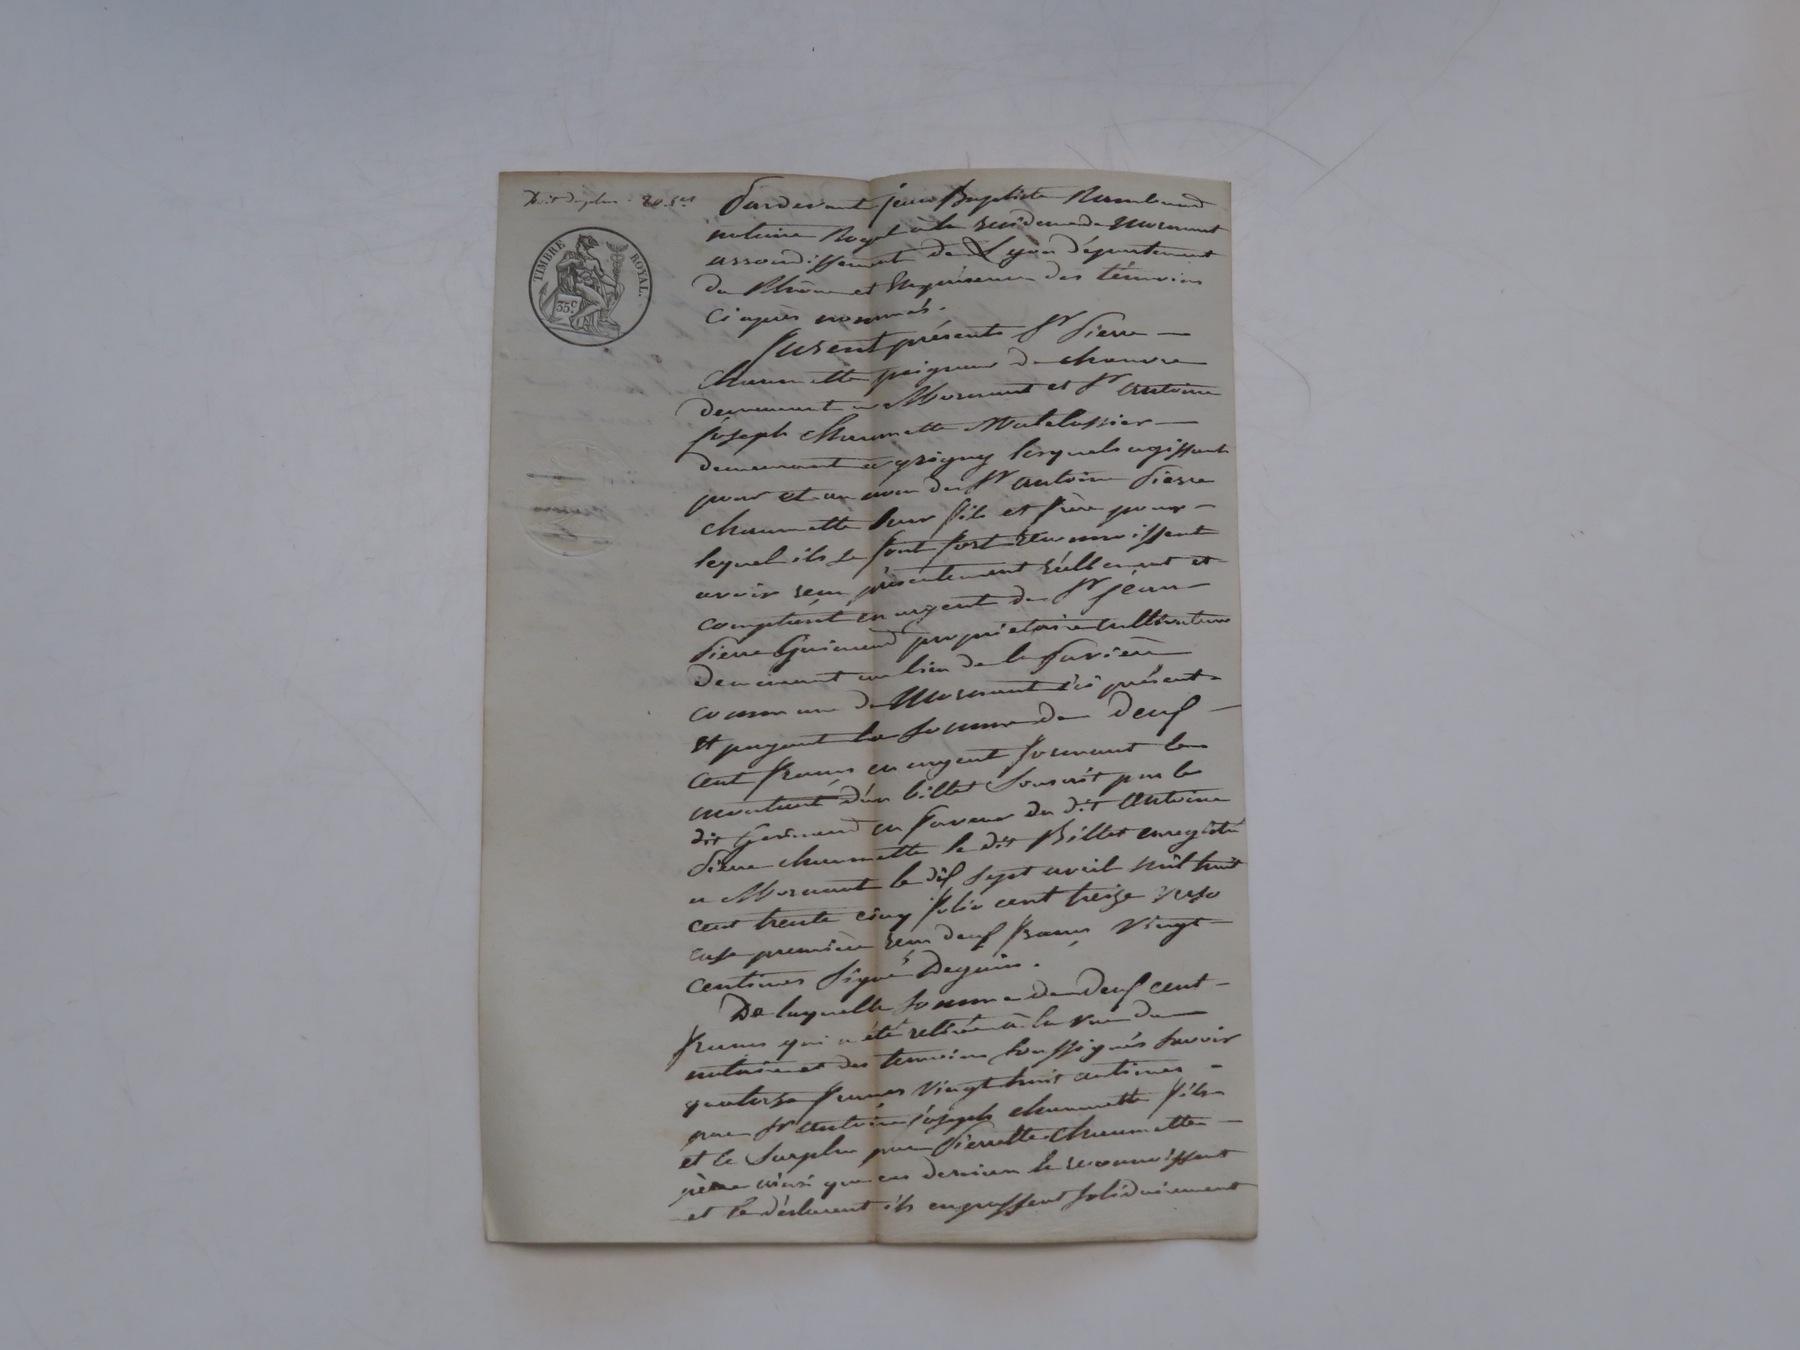 TIMBRE ROYAL.
35 c
Pardevant jean Baptiste Rambaud
notaire Royal à la résidence de Mornant
arrondissement de Lyon département
du Rhône et En présence des témoins
Ci après nommés.
furent présents Sr Pierre
Chaumette peigneur de chanvre
demeurant a Mornant et Sr Antoine
joseph Chaumette Matelassier
demeurant a grigny lesquels agissant
pour et au nom de Sr antoine Pierre
chaumette leur fils et frère pour
lequel ils se font fort reconnoissent
avoir reçu présentement réellement et
comptant en argent de Sr jean
Pierre proprietaire cultivateur
demeurant au lieu de la
commune de Mornant ici présent
et payant la somme de deux
cent francs en argent formant le
montant d'un billet Souscrit par le
dit en faveur du dit Antoine
Pierre chaumette le dit Billet enregistré
a Mornant le dix sept avril mil huit
cent trente cinq folio cent treize verso
case première reçu deux francs Vingt
centimes Signé Deguin.
De laquelle somme de deux cent
francs qui a été retirée à la vue du
notaire et des temoins soussignés savoir
quatorze francs Vingt huit centimes
par Sr antoine joseph chaumette fils
et le Surplus par Pierre Chaumette
père ainsi que ces derniers le reconnoissent
et le déclarent ils en passent solidairement